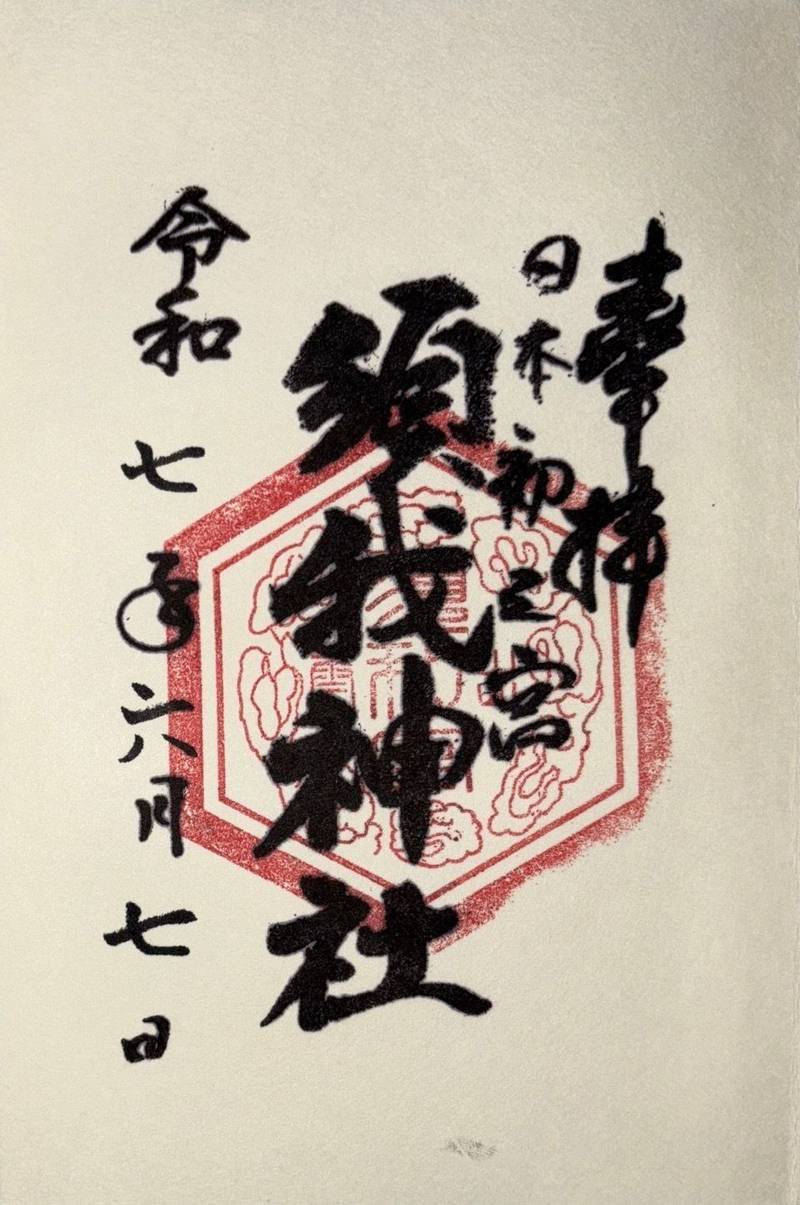 奉拝
日本初之宮
須我神社
令和七年六月七日